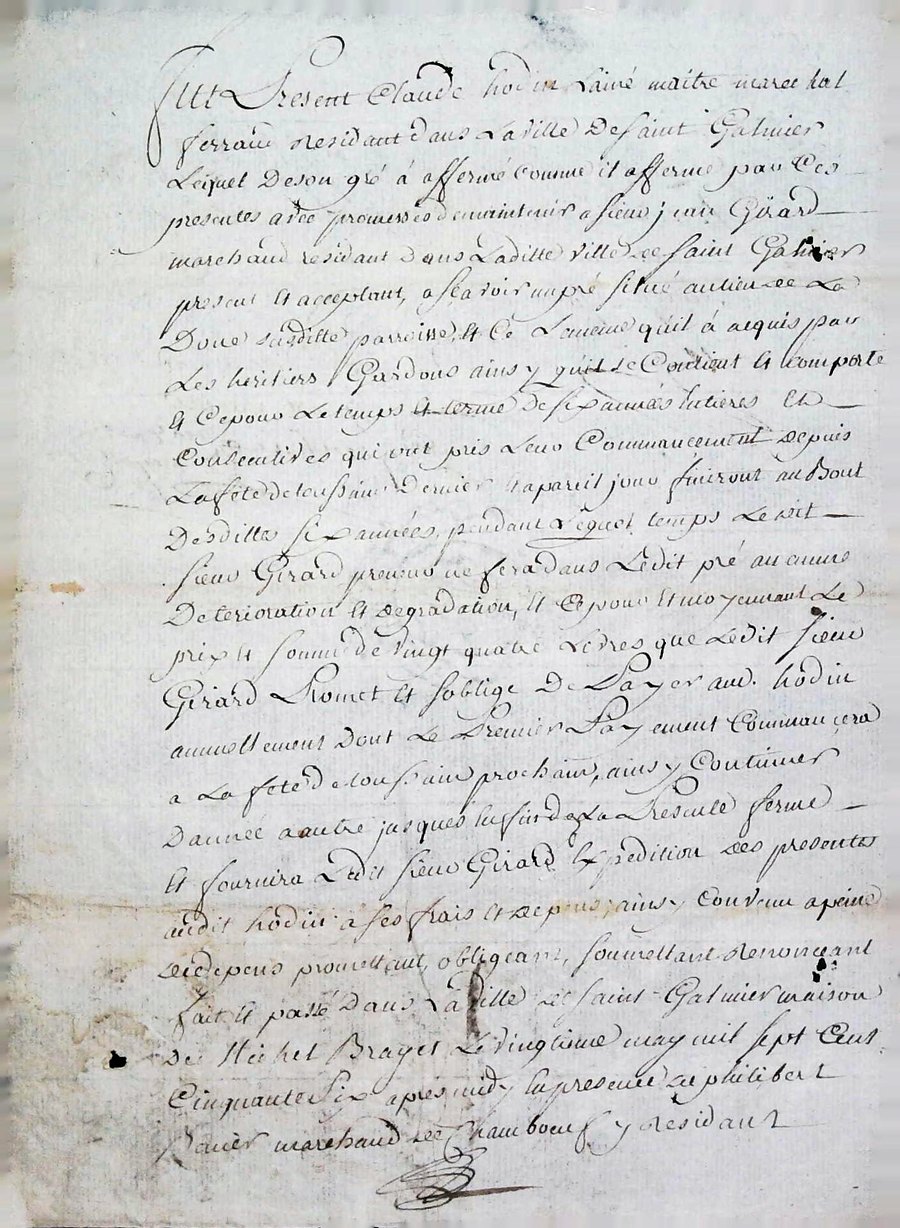 Fut Present Claude hodin Lainé maitre marechal
ferrant Residant dans La ville De saint Galmier
Lequel De son gré à affermé comme il afferme par Ces
presentes avec promesses de maintenir a sieur jean Girard
marchand residant Dans Laditte ville De saint Galmier
present Et acceptant, a sçavoir un pré situé au lieu De La
Doue susditte parroisse, Et Ce Lameme quil à acquis par
Les heritiers Gardons ainsy quil se Contient Et Comporte
Et Ce pour Le temps Et terme De six années Entieres Et
Consecutives qui ont pris Leur Commancement Depuis
La féte de toussaint Dernier Et a pareil jour finiront au Bout
Desdittes six années, pendant Lequel temps Ledit
sieur Girard preneur ne fera dans Ledit pré aucunne
Deterioration Et degradation, Et Ce pour Et moyennant Le
prix Et somme de vingt quatre Livres que Ledit sieur
Girard Promet Et soblige De Payer aud. hodin
annuellement Dont Le Premier Payement Commançera
a La fete de toussaint prochain, ainsy Continuer
Dannée a autre jusques la fin de La Presente ferme
Et fournira Ledit sieur Girard Expedition Des presentes
audit hodin à ses frais Et depens, ainsy Convenu a peine
De depens, promettant, obligeant, soumettant Renonceant
fait Et passé Dans La Ville De saint Galmier maison
De Michel Brayet Le vingtieme may mil sept Cent
Cinquante Six apres midy En presence De philibert
marchand De Chamboeuf y Residant